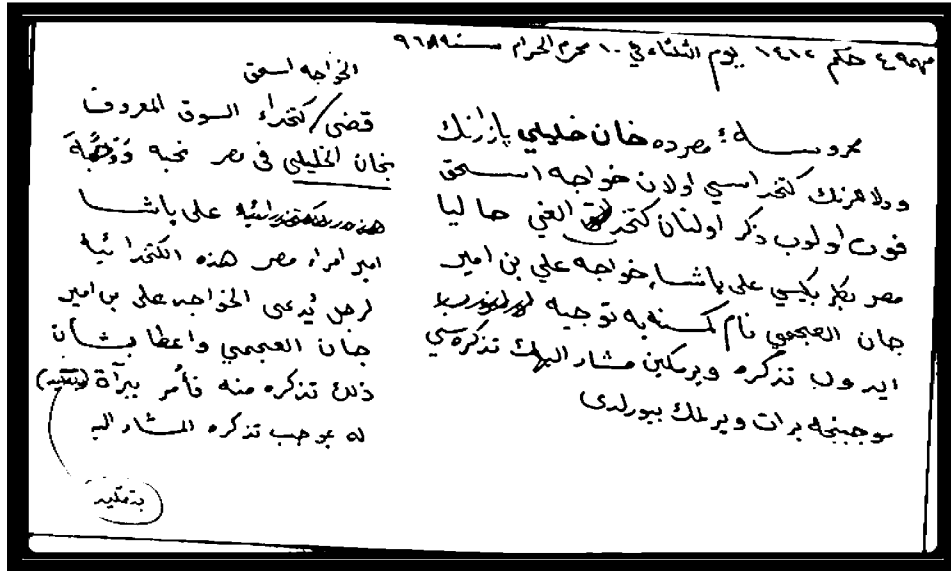 مهمه ٤ حكم ١٤١٢ يوم الثلثاء في ١٠ محرم الحرام سنة ٩٦٨
محروسهٔ مصرده خان خليلي بازارنك
ودلاهرنك كتخداسي اولان خواجه اسحق
فوت اولوب ذكر اولنان كتخدالق الغي حاليا
مصر بكلربكيسي علي پاشا خواجه علي بن امير
جان العجمي نام كمسنه يه توجيه
ايدوب تذكره ويرمكين مشار اليهك تذكره سي
موجبنجه برات ويرلمك بيورلدى
الخواجه اسحق
قضى كتخداء السوق المعروف
بخان الخليلي في مصر نحبه
علي باشا
امير امراء مصر هذه الكتخدائية
لرجل يُدعى الخواجه علي بن امير
جان العجمي واعطا بشأن
ذلك تذكره منه فأمر ببرآة
له بموجب تذكره المشار اليه